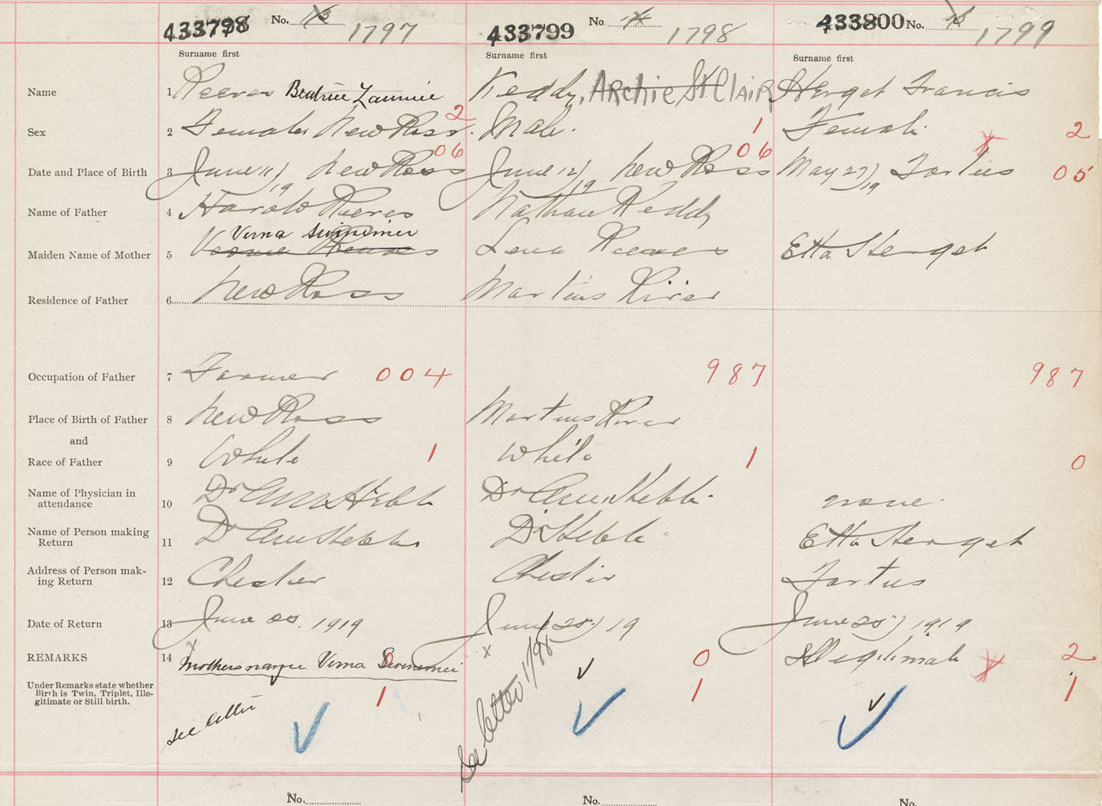 433798 No. 1797 433799 No. 1798 433800 No. 1799
Surname first Surname first Surname first
Name 1 Reeves Beatrice Keddy, Archie St. Clair Herget Francis
Sex 2 Female New Ross. 2 Male. 1 Female. x 2
Date and Place of Birth 3 June 11/19 New Ross 06 June 12/19 New Ross 06 May 27/19 05
Name of Father 4 Harold Reeves Nathan Keddy
Verna Swinimer
Maiden Name of Mother 5 Reeves Lena Reeves Etta Herget
Residence of Father 6 New Ross Martins River
Occupation of Father 7 Farmer 004 987 987
Place of Birth of Father 8 New Ross Martins River
and
Race of Father 9 White 1 White 1 0
Name of Physician in
attendance 10 Dr Hebb Dr Hebb. none.
Name of Person making
Return 11 Dr Hebb Dr Hebb. Etta Herget
Address of Person mak-
ing Return 12 Chester Chester
Date of Return 13 June 20. 1919 June 20/19 June 20/1919
REMARKS 14 x Mothers name Verna Swinimer 0 x 0 Illegitimate x 2
Under Remarks state whether
Birth is Twin, Triplet, Ille-
gitimate or Still birth. 1 1 1
see letter See letter 1798
No. No. No.